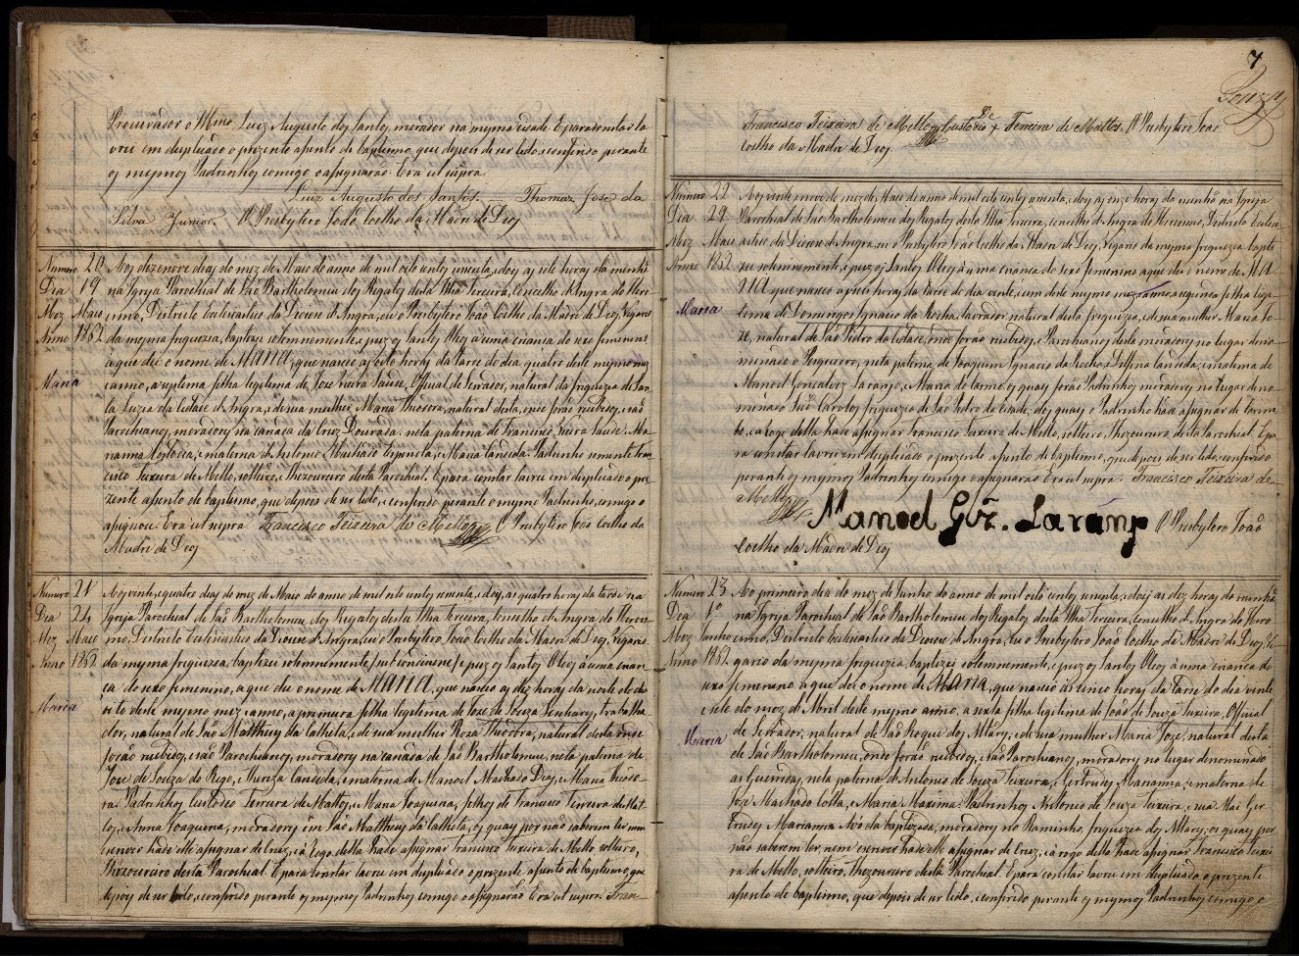 Procurador o Mmo Luiz Augusto dos Santos, morador na mesma cidade. E para constar la
vrei em duplicado o prezente assento de baptismo, que depois de ser lido e conferido perante
os mesmos Padrinhos comigo o assignarão. Era ut supra.
Luiz Augusto dos Santos. Thomaz Jose da
Silva Junior. O Presbytero João Coelho da Madre de Deos
Numero 20
Dia 19
Mez Maio
Anno 1862
Maria
Aos dezenove dias do mez de Maio do anno de mil oito centos secenta e dois as sete horas da manhã
na Igreja Parochial de São Bartholomeu dos Regatos desta Ilha Terceira, Concelho d'Angra do Hero-
ismo, Districto Ecclesiastico da Diocese d'Angra, eu o Presbytero João Coelho da Madre de Deos, Vigario
da mesma freguezia, baptizei solemnemente, e puz os Santos Oleos a uma criança do sexo femenino
a que dei o nome de MARIA, que nasceo as oito horas da tarde do dia quatro deste mesmo mez
e anno, a septima filha legitima de Jose Vieira Saude, Official de Serrador, natural da freguezia de San-
ta Luzia da Cidade d'Angra, e de sua mulher Maria Theodora, natural desta, onde forão recebidos, e são
Parochianos, moradores na Canada da Cruz Dourada: neta paterna de Francisco Vieira Saude, e Ma-
rianna, e materna de Antonio Machado Espinola, e Maria Candida. Padrinho somente Fran-
cisco Teixeira de Mello, solteiro, Thezoureiro desta Parochial. E para constar lavrei em duplicado o pre-
zente assento de baptismo, que depois de ser lido, e conferido perante o mesmo Padrinho, comigo o
assignou. Era ut supra. Francisco Teixeira de Mello O Presbytero João Coelho da
Madre de Deos
Numero 21
Dia 24
Mez Maio
Anno 1862
Maria
Aos vinte e quatro dias do mez de Maio do anno de mil oito centos secenta e dois, as quatro horas da tarde na
Igreja Parochial de São Bartholomeu dos Regatos desta Ilha Terceira, Concelho d'Angra do Herois-
mo, Districto Ecclesiastico da Diocese d'Angra, eu o Presbytero João Coelho da Madre de Deos, Vigario
da mesma freguezia, baptizei solemnemente (sub conditione) e puz os Santos Oleos a uma crian-
ça do sexo femenino, a que dei o nome de MARIA, que nasceo as dez horas da noite do dia
oito deste mesmo mez e anno, a primeira filha legitima de Jose de Souza Linhares, trabalha-
dor, natural de São Mattheus da Calheta, e de sua mulher Rosa Theodora, natural desta onde
forão recebidos, e são Parochianos, moradores na Canada de São Bartholomeu, neta paterna de
Jose de Souza do Rego, e Thereza Candida, e materna de Manoel Machado Dias, e Maria Theodo-
ra. Padrinhos Custodio Ferreira de Mattos, e Maria Joaquina, filhos de Francisco Ferreira de Mat-
tos, e Anna Joaquina, moradores em São Mattheus da Calheta, os quaes por não saberem ler nem
escrever hade elle assignar de cruz, e a rogo della hade assignar Francisco Teixeira de Mello solteiro,
Thezoureiro desta Parochial. E para constar lavrei em duplicado o prezente assento de baptismo, que
depois de ser lido, e conferido perante os mesmos Padrinhos comigo o assignarão. Era ut supra. Fran-
7
Souza
Francisco Teixeira de Mello Custodio + Ferreira de Mattos. O Presbytero João
Coelho da Madre de Deos
Numero 22
Dia 29
Mez Maio
Anno 1862
Maria
Aos vinte e nove do mez de Maio do anno de mil oito centos secenta, e dois as onze horas da manhã na Igreja
Parochial de São Bartholomeu dos Regatos desta Ilha Terceira, Concelho de Angra do Heroismo, Districto Eccle-
siastico da Diocese de Angra, eu o Presbytero João Coelho da Madre de Deos, Vigario da mesma freguezia bapti-
zei solemnemente, e puz os Santos Oleos a uma criança do sexo femenino a que dei o nome de MA-
RIA que nasceo as seis horas da tarde do dia vinte, e um deste mesmo mez e anno a segunda filha legi-
tima de Domingos Ignacio da Rocha, lavrador natural desta freguezia, e de sua mulher Maria Jo-
ze, natural de São Pedro da Cidade, onde forão recebidos, e Parochianos desta moradores no lugar deno-
minado o Pesqueiro, neta paterna de Joaquim Ignacio da Rocha, e Delfina Candida; e materna de
Manoel Gonçalves Laranjo, e Maria do Carmo, os quaes forão Padrinhos moradores no lugar deno-
minado São Carlos freguezia de São Pedro da Cidade, dos quaes o Padrinho hade assignar de
e a rogo della hade assignar Francisco Teixeira de Mello, solteiro, Thezoureiro desta Parochial. E pa-
ra constar lavrei em duplicado o prezente assento de baptismo, que depois de ser lido, e conferido
perante os mesmos Padrinhos comigo o assignarão. Era ut supra. Francisco Teixeira de
Mello Manoel Glz. Laranjo O Presbytero João
Coelho da Madre de Deos
Numero 23
Dia 1º
Mez Junho
Anno 1862
Maria
Ao primeiro dia do mez de Junho do anno de mil oito centos secenta, e dois as dez horas da manhã
na Igreja Parochial de São Bartholomeu dos Regatos desta Ilha Terceira, Concelho d'Angra do Hero-
ismo, Districto Ecclesiastico da Diocese d'Angra, eu o Presbytero João Coelho da Madre de Deos, Vi-
gario da mesma freguezia, baptizei solemnemente, e puz os Santos Oleos a uma criança do
sexo femenino a que dei o nome de MARIA, que nasceo as cinco horas da tarde do dia vinte
e sete do mez de Abril deste mesmo anno, a sexta filha legitima de João de Souza Teixeira, Official
de Serrador, natural de São Roque dos Altares, e de sua mulher Maria Joze, natural desta
de São Bartholomeu, onde forão recebidos, e são Parochianos, moradores no lugar denominado
as Guerrilhas, neta paterna de Antonio de Souza Teixeira, e Gertrudes Marianna; e materna de
Joze Machado Cotta, e Maria Maxima. Padrinhos Antonio de Souza Teixeira, e sua Mai Ger-
trudes Marianna Avó da baptizada, moradores no Raminho, freguezia dos Altares, os quaes por
não saberem ler, nem escrever hade elle assignar de cruz, e a rogo della hade assignar Francisco Teixei-
ra de Mello, solteiro, Thezoureiro desta Parochial. E para constar lavrei em duplicado o prezente
assento de baptismo, que depois de ser lido, e conferido perante os mesmos Padrinhos comigo o